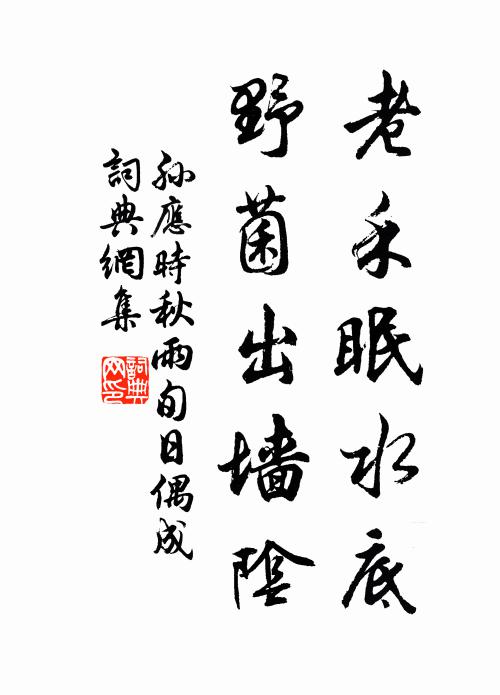 老禾眠水底
野菌出墙陰
孫應時秋雨旬日偶成
詞典網集
詞典
网印